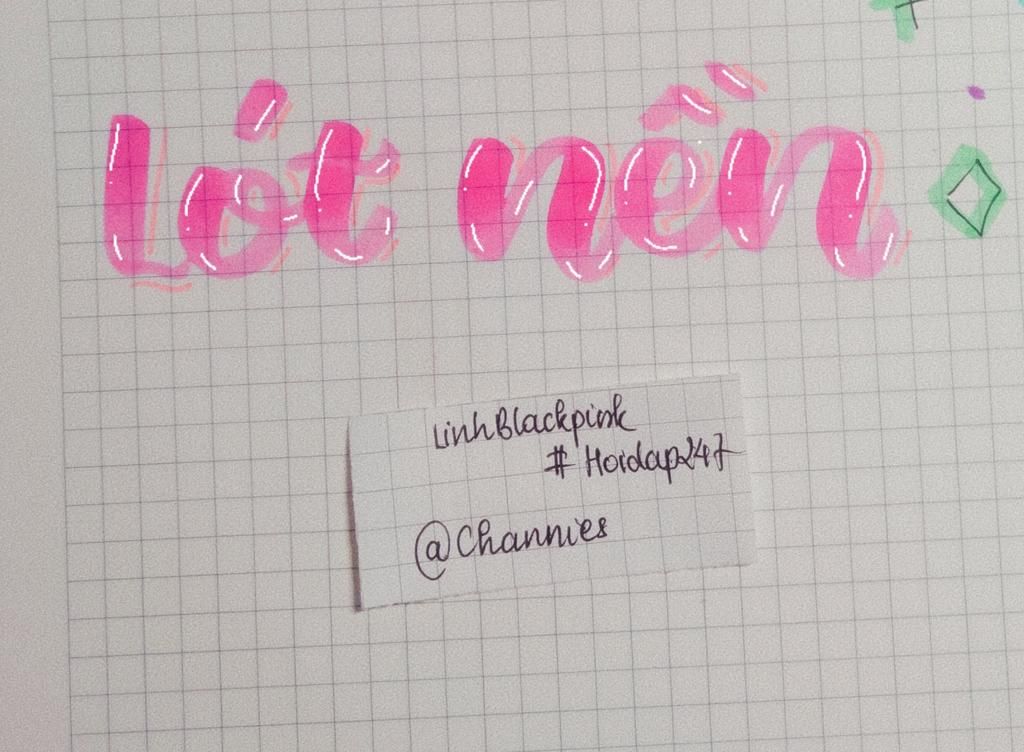 Lót nền
LinhBlackpink
# Hoidap247
@Channies